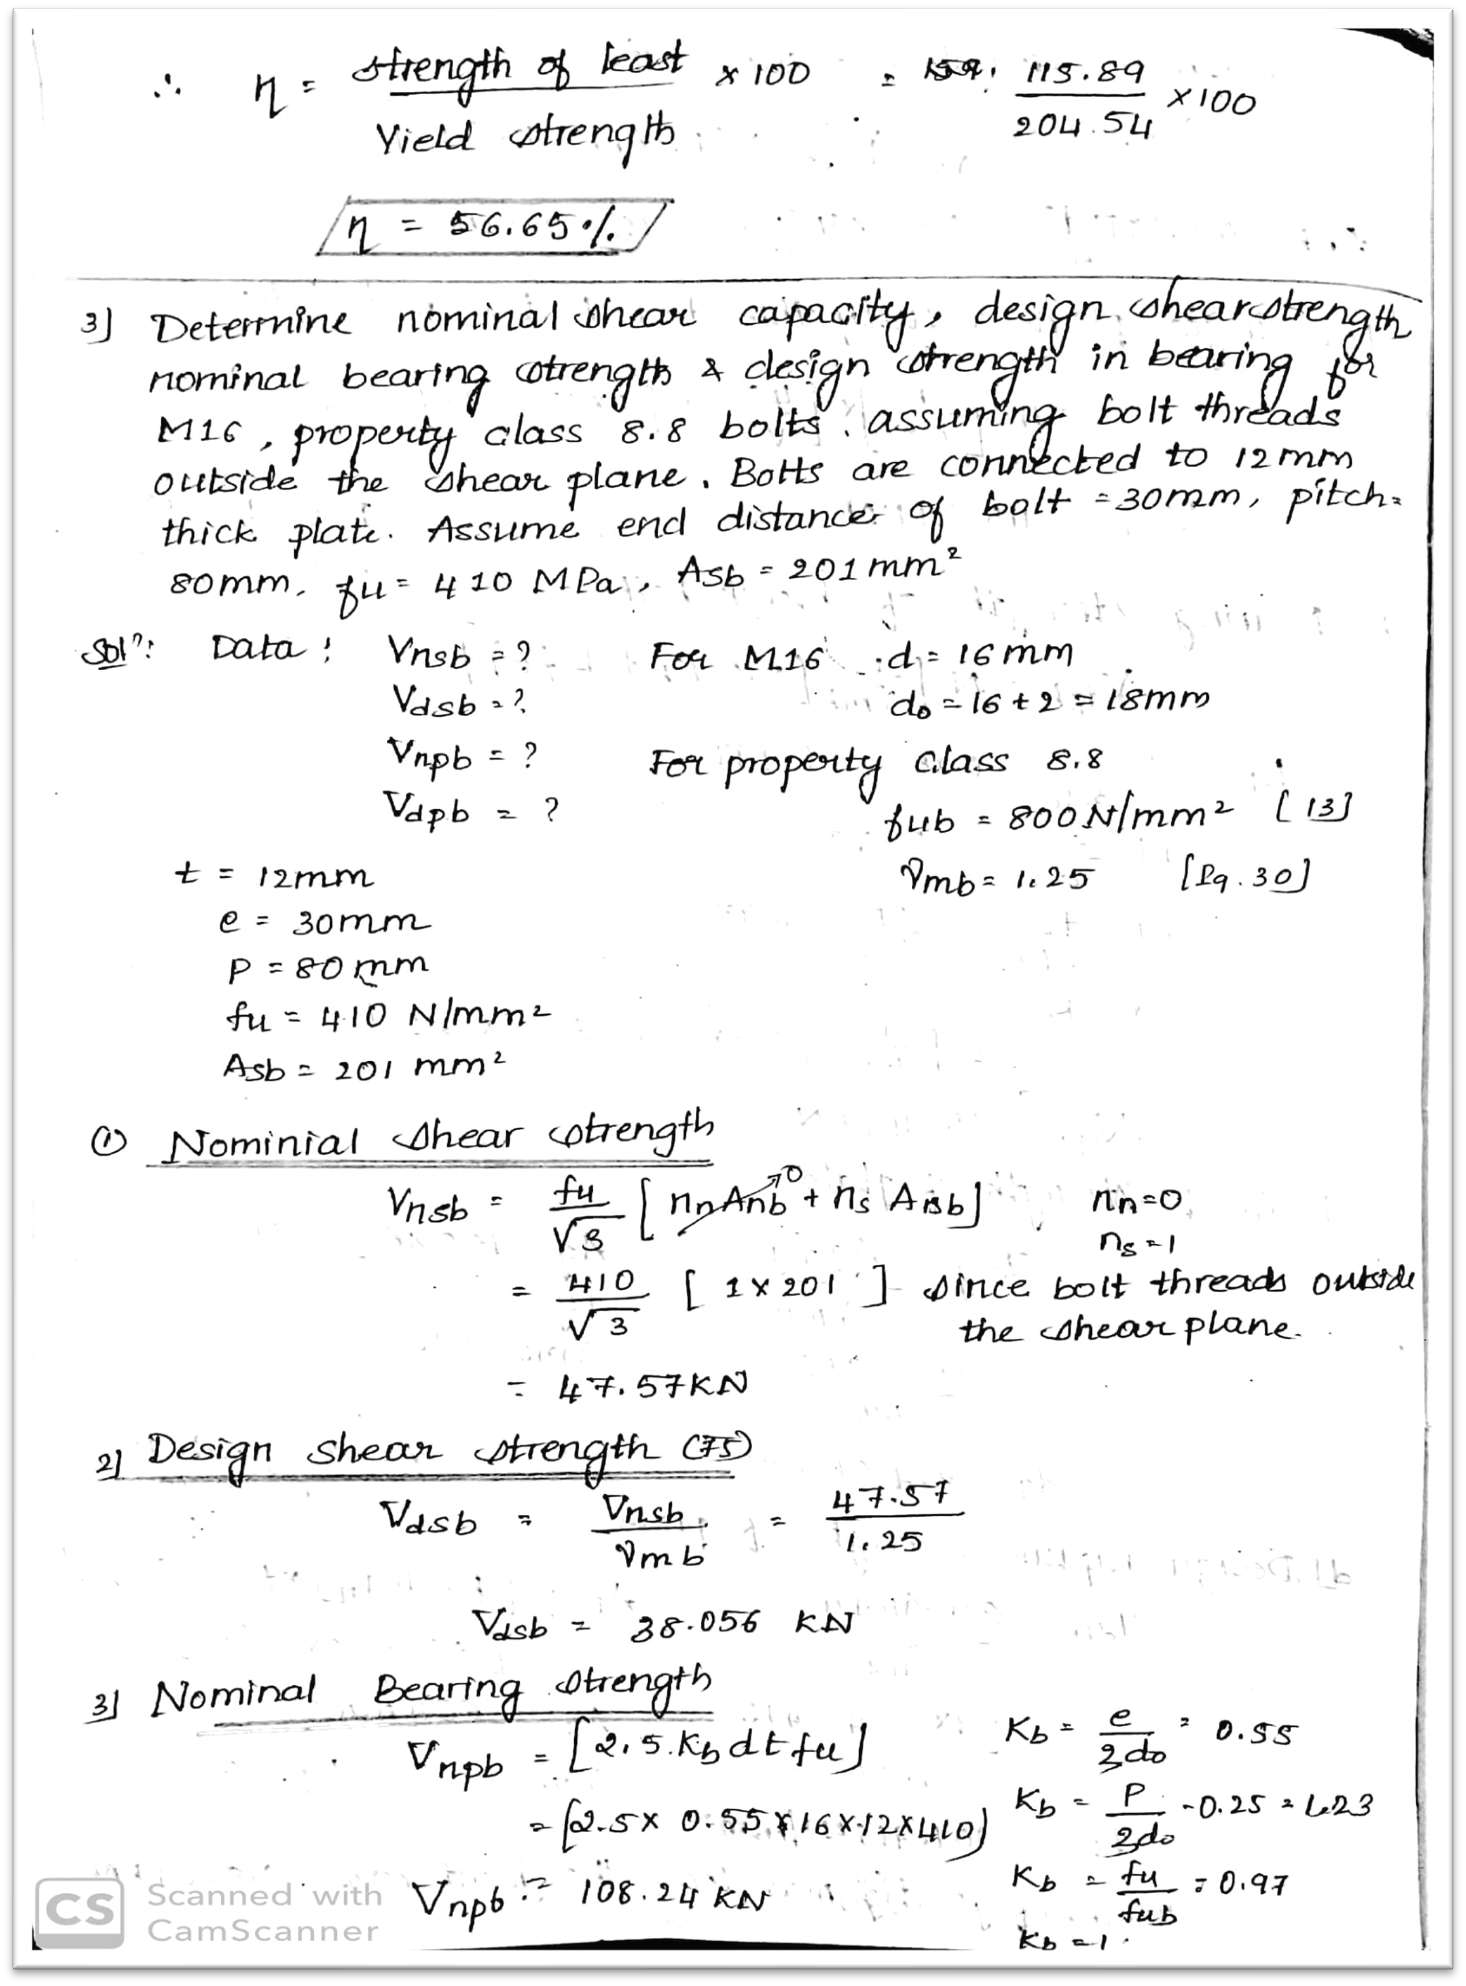 ∴ η = strength of least / Yield strength × 100 = 115.89 / 204.54 × 100
η = 56.65 %
3] Determine nominal shear capacity, design shear strength
nominal bearing strength & design strength in bearing for
M16, property class 8.8 bolts. assuming bolt threads
outside the shear plane. Bolts are connected to 12mm
thick plate. Assume end distance of bolt = 30mm, pitch=
80mm, fu = 410 MPa, Asb = 201 mm²
Solⁿ: Data: Vnsb = ? For M16 d = 16mm
Vdsb = ? do = 16 + 2 = 18mm
Vnpb = ? For property class 8.8
Vdpb = ? fub = 800 N/mm² [13]
t = 12mm γmb = 1.25 [Pg. 30]
e = 30mm
P = 80mm
fu = 410 N/mm²
Asb = 201 mm²
① Nominial shear strength
Vnsb = fu/√3 [nn Anb→0 + ns Asb] nn=0
ns=1
= 410/√3 [1 × 201] since bolt threads outside
the shear plane.
= 47.57KN
2] Design shear strength (75)
Vdsb = Vnsb/γmb = 47.57/1.25
Vdsb = 38.056 KN
3] Nominal Bearing strength
Vnpb = [2.5.Kb dt fu] Kb = e/3do = 0.55
= [2.5× 0.55×16×12×410] Kb = P/3do -0.25 = 1.23
Vnpb = 108.24 KN Kb = fu/fub = 0.97
Kb =1.
CS Scanned with
CamScanner